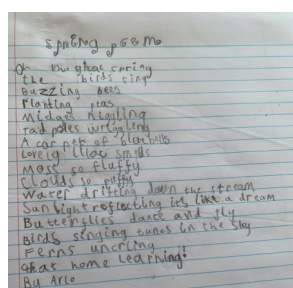 Spring poem
Oh magical spring
the birds sing
Buzzing bees
Planting peas
Midges niggling
tadpoles wriggling
A carpet of bluebells
Lovely lilac smells
Moss so fluffy
Clouds so puffy
Water drifting down the stream
Sunlight reflecting its like a dream
Butterflies dance and fly
Birds singing tunes in the sky
Ferns uncurling
great home learning!
By Arlo